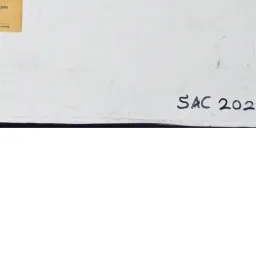 SAC 202